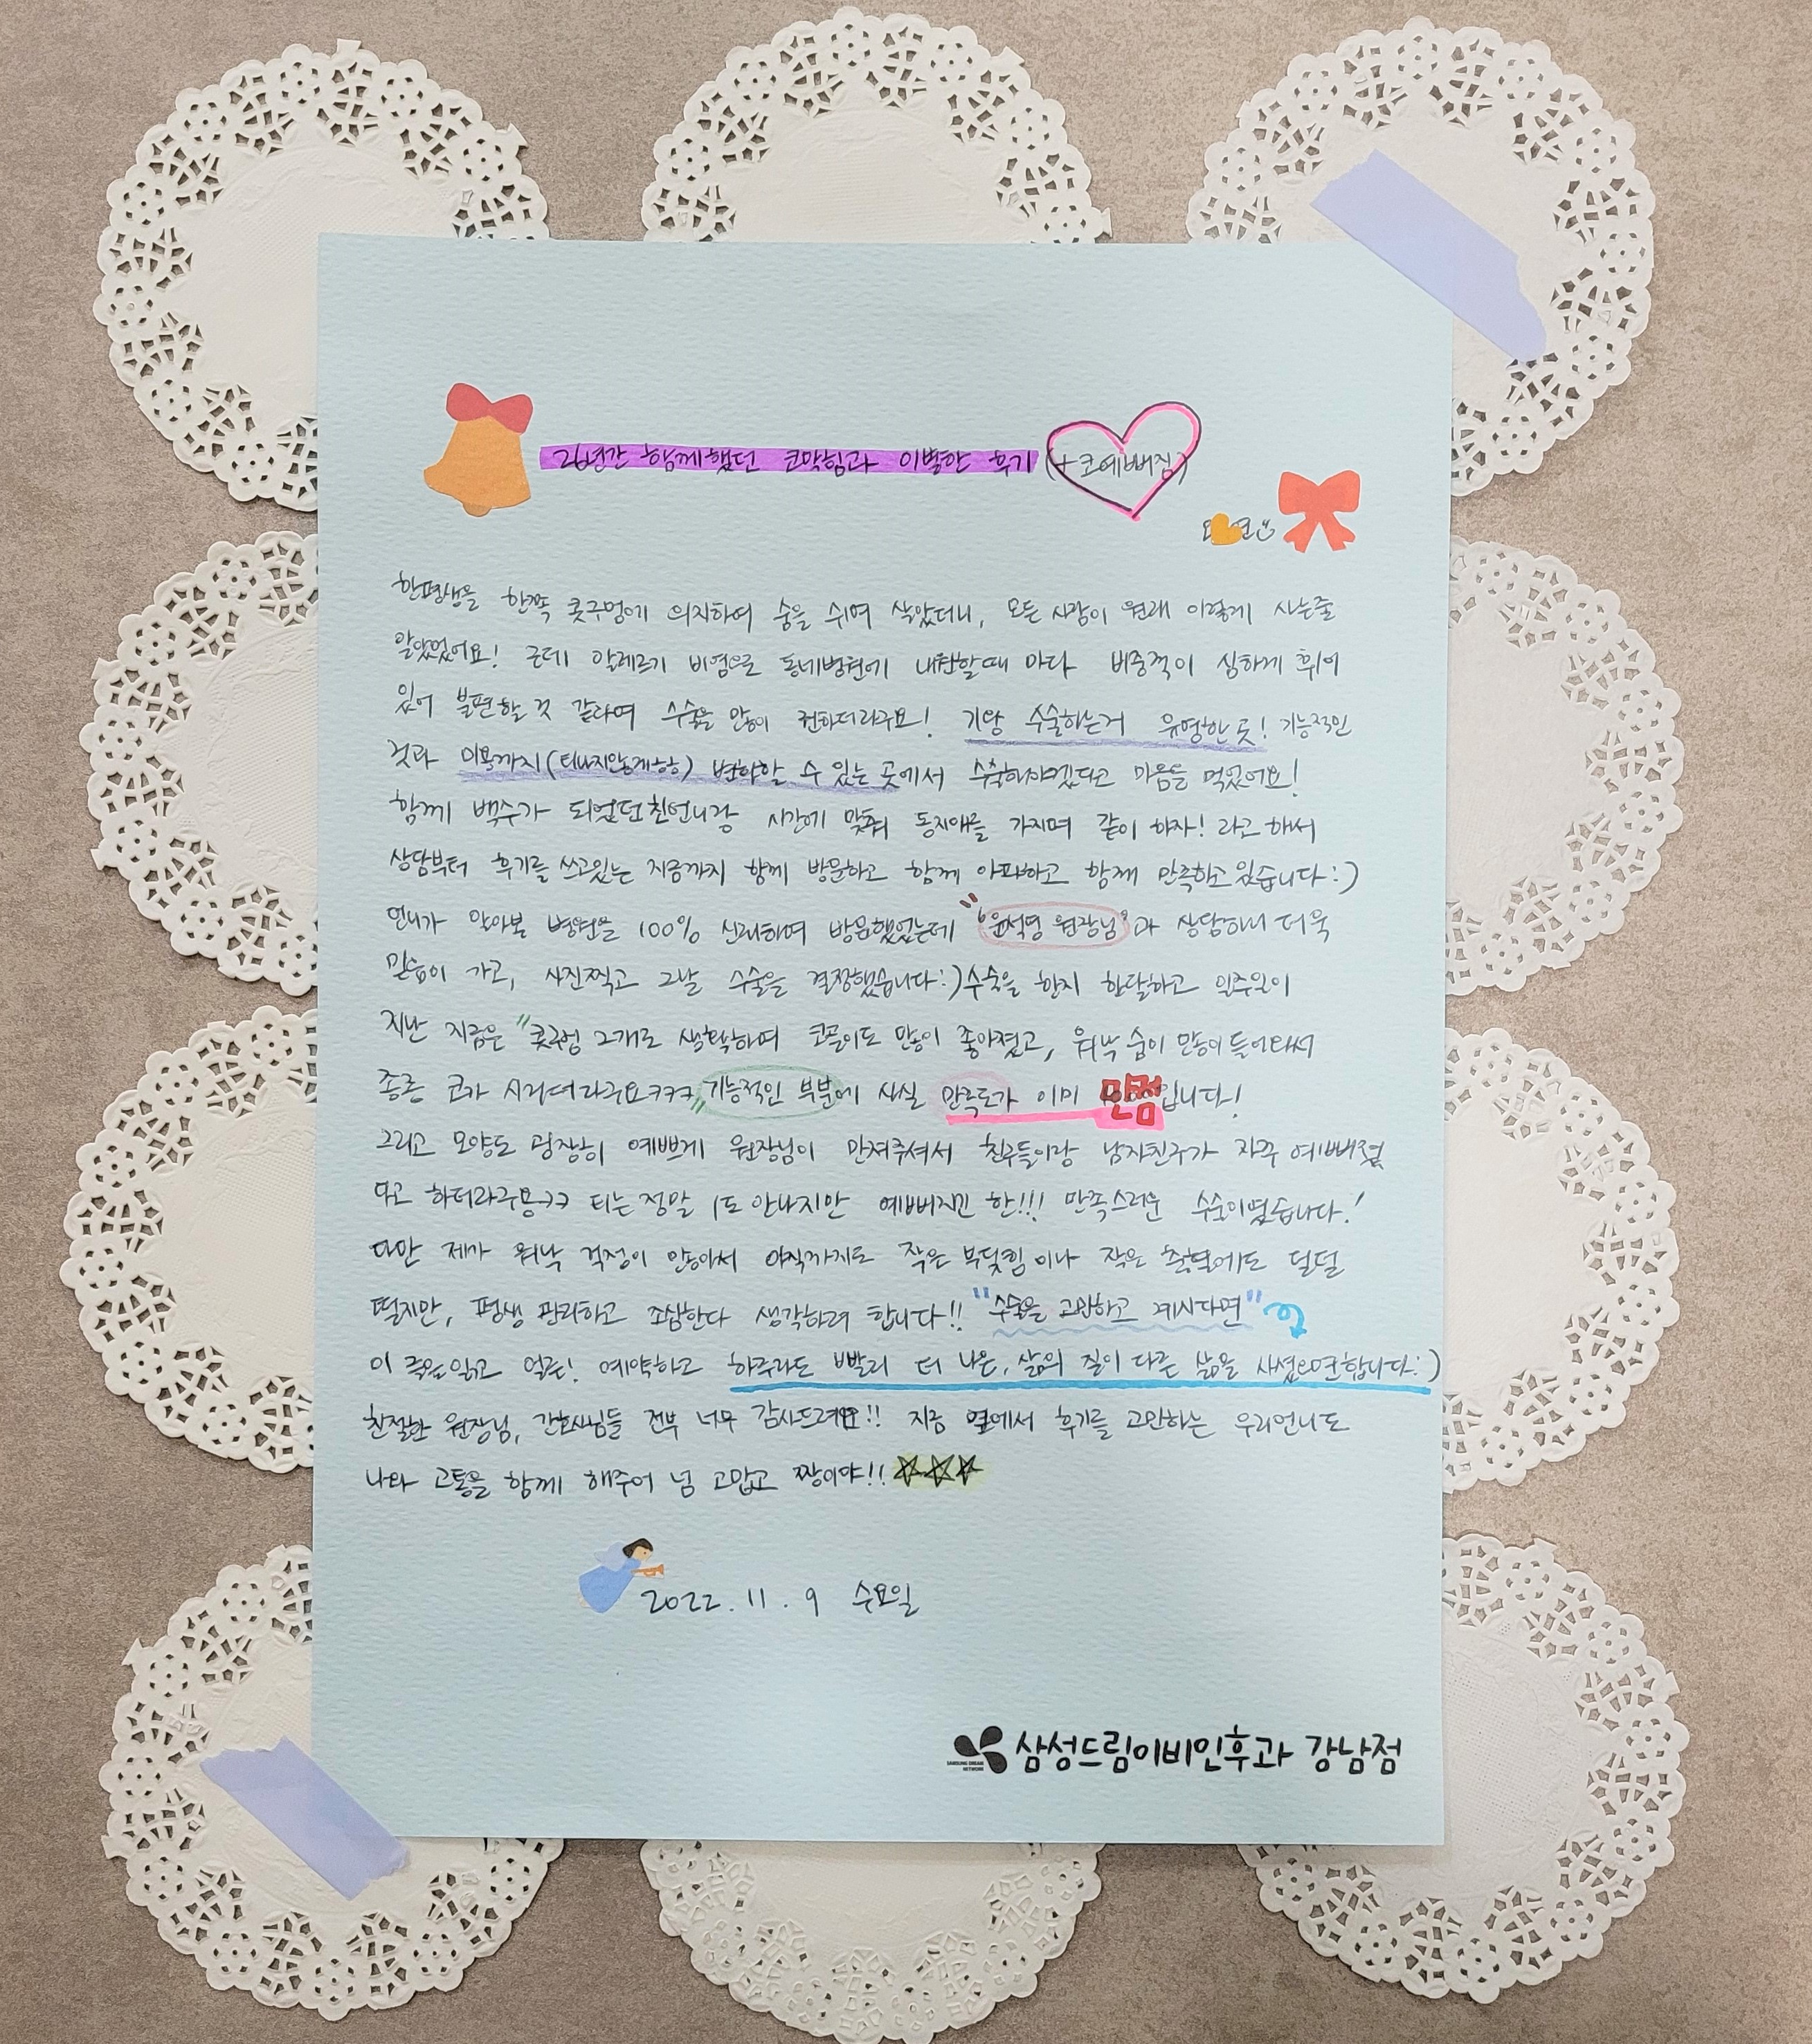 26년간 함께했던 코막힘과 이별한 후기 (+코예뻐짐)
한평생을 한쪽 콧구멍에 의지하여 숨을 쉬며 살았더니, 모든 사람이 원래 이렇게 사는줄
알았었어요! 근데 알레르기 비염으로 동네병원에 내원할때 마다 비중격이 심하게 휘어
있어 불편할 것 같다며 수술을 많이 권하더라구요! 기왕 수술하는거 유명한 곳! 기능적인
것과 미용까지(티나지않게ㅎㅎ) 변화할 수 있는 곳에서 수술해야겠다고 마음을 먹었어요!
함께 백수가 되었던 친언니랑 시간에 맞춰 동지애를 가지며 같이 하자! 라고 해서
상담부터 후기를 쓰고있는 지금까지 함께 방문하고 함께 아파하고 함께 만족하고 있습니다:)
언니가 알아본 병원을 100% 신뢰하며 방문했었는데 "윤석영 원장님"과 상담하니 더욱
믿음이 가고, 사진찍고 그날 수술을 결정했습니다:) 수술을 한지 한달하고 일주일이
지난 지금은 "콧구멍 2개로 생활하며 코골이도 많이 좋아졌고, 워낙 숨이 많이 들어와서
종종 코가 시리더라구요ㅋㅋㅋ" 기능적인 부분에 사실 만족도가 이미 만점입니다!
그리고 모양도 굉장히 예쁘게 원장님이 만져주셔서 친구들이랑 남자친구가 자꾸 예뻐졌
다고 하더라구용ㅋㅋ 티는 정말 1도 안나지만 예뻐지긴 한!!! 만족스러운 수술이였습니다!
다만 제가 워낙 걱정이 많아서 아직까지도 작은 부딪힘 이나 작은 출혈에도 덜덜
떨지만, 평생 관리하고 조심한다 생각하려 합니다!! "수술을 고민하고 계시다면"
이 글을 읽고 얼른! 예약하고 하루라도 빨리 더 나은, 삶의 질이 다른 삶을 사셨으면합니다:)
친절한 원장님, 간호사님들 전부 너무 감사드려요!! 지금 옆에서 후기를 고민하는 우리언니도
나와 고통을 함께 해주어 넘 고맙고 짱이야!!
2022. 11. 9 수요일
SAMSUNG DREAM NETWORK 삼성드림이비인후과 강남점